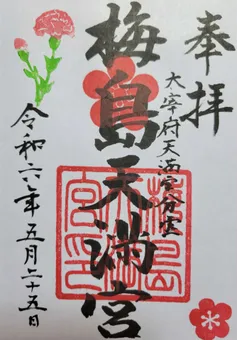 奉拝
太宰府天満宮分霊
梅島天満宮
令和六年五月二十五日